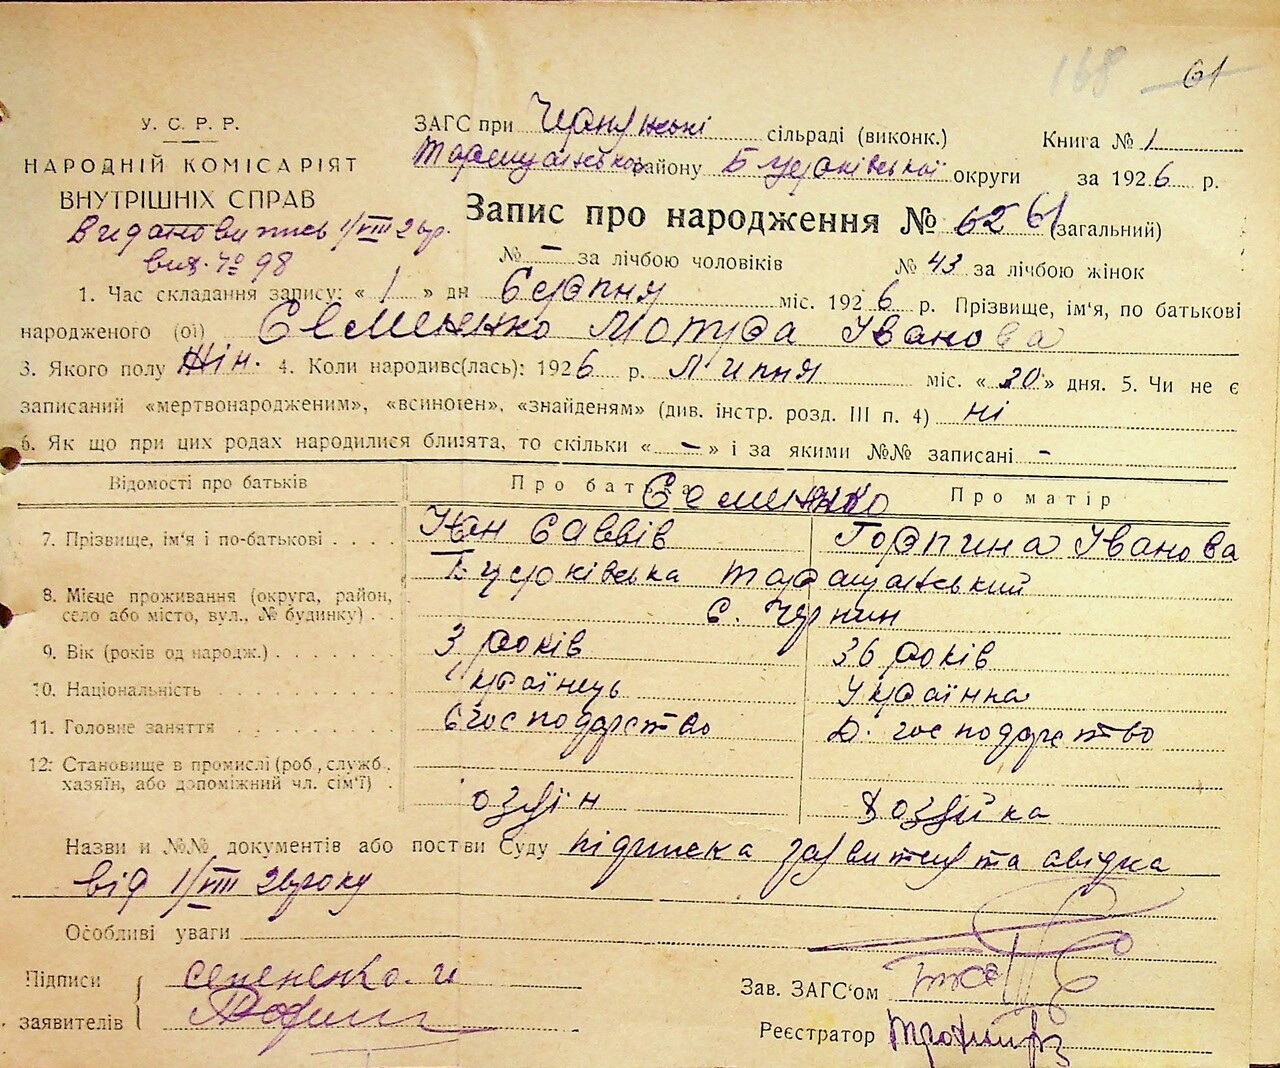 168 61
У. С. Р. Р.
НАРОДНІЙ КОМІСАРІЯТ
ВНУТРІШНІХ СПРАВ
ЗАГС при сільраді (виконк.) Книга № 1
району округи за 1926 р.
Запис про народження № 62 61 (загальний)
вип. № 98
№ – за лічбою чоловіків № 43 за лічбою жінок
1. Час складання запису: « 1 » дн Серпня міс. 1926 р. Прізвище, ім'я, по батькові
народженого (ої) Семененко Мотря Іванова
3. Якого полу Жін. 4. Коли народивс(лась): 1926 р. Липня міс. « 20 » дня. 5. Чи не є
записаний «мертвонародженим», «всиноюєн», «знайденям» (див. інстр. розд. III п. 4) ні
6. Як що при цих родах народилися близята, то скільки « – » і за якими №№ записані –
Відомості про батьків Про батька Семененко Про матір
7. Прізвище, ім'я і по-батькові Іван Саввів Горпина Іванова
8. Місце проживання (округа, район, село або місто, вул., № будинку) Таращанський
с. Черпин
9. Вік (років од народж.) 3 років 36 років
10. Національність Українець Українка
11. Головне заняття господарство Д. господарство
12: Становище в промислі (роб, служб. хазяїн, або допоміжний чл. сім'ї)
Назви и №№ документів або постви Суду підписка та свідка
від 1/VIII 26 року
Особливі уваги
Підписи семененко. и
заявителів
Зав. ЗАГС'ом
Реєстратор